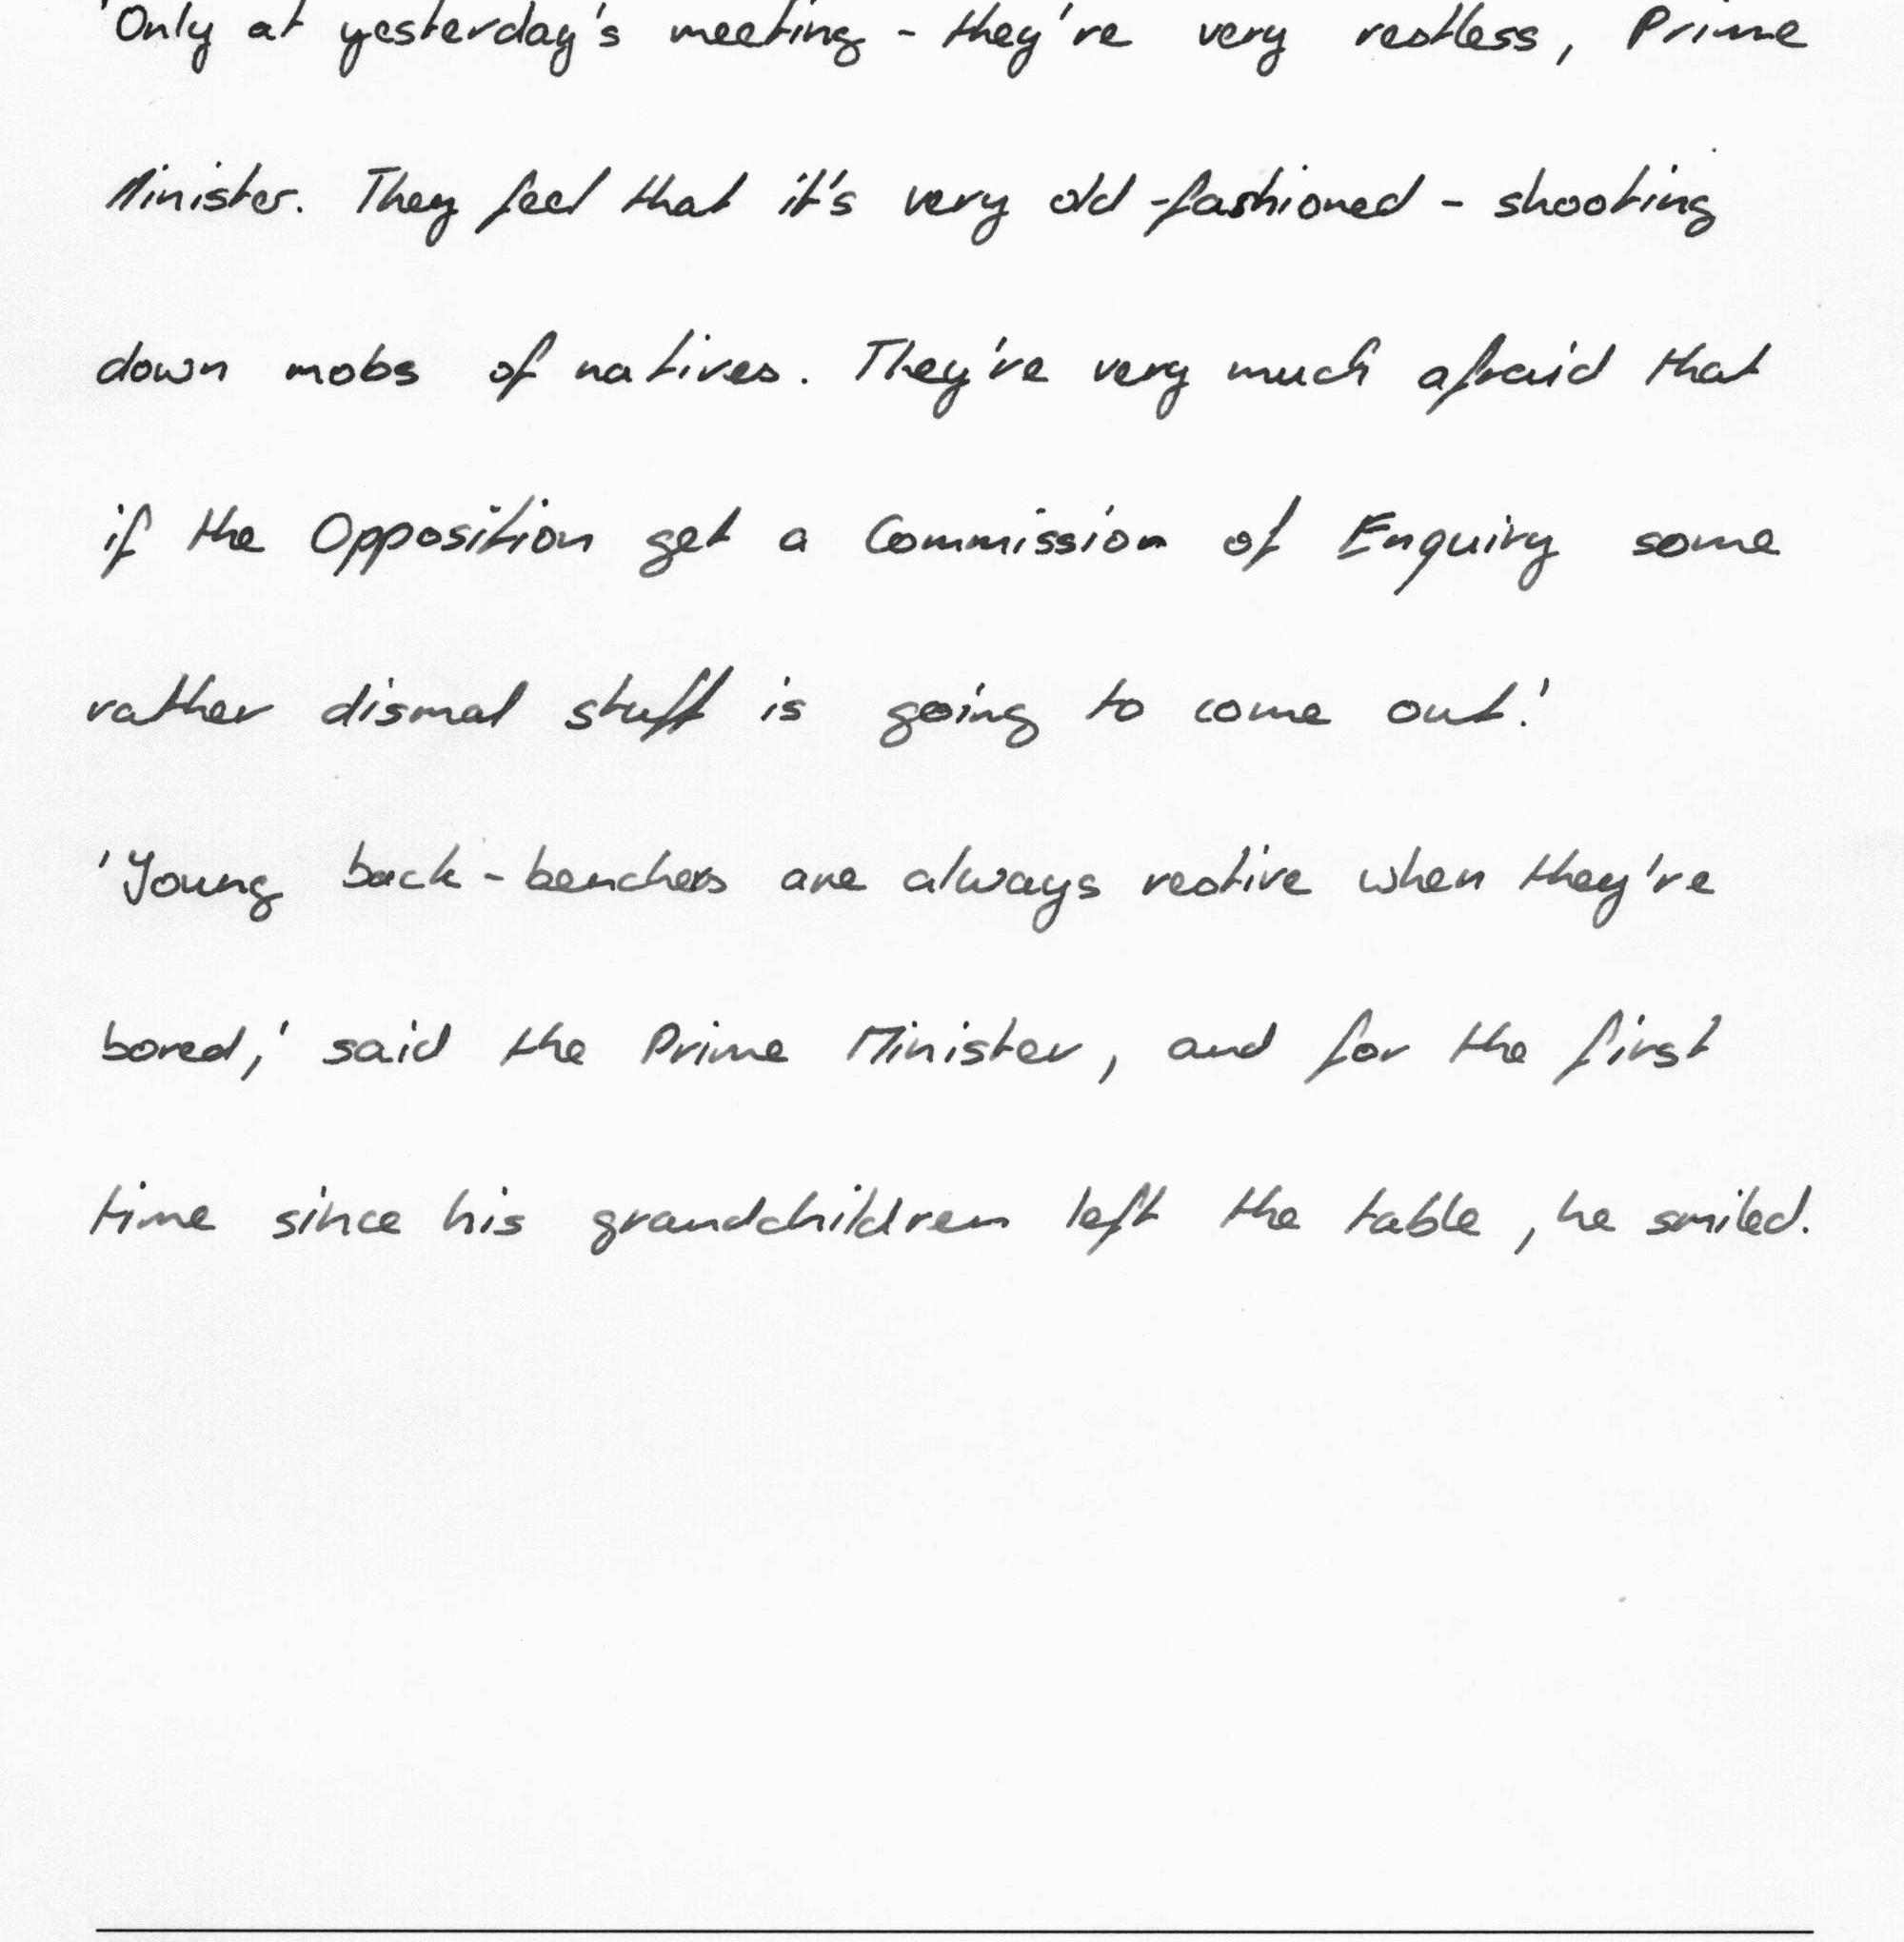 'Only at yesterday's meeting - they're very restless, Prime
Minister. They feel that it's very old-fashioned - shooting
down mobs of natives. They've very much afraid that
if the Opposition get a Commission of Enquiry some
rather dismal stuff is going to come out.'
'Young back-benchers are always restive when they're
bored,' said the Prime Minister, and for the first
time since his grandchildren left the table, he smiled.